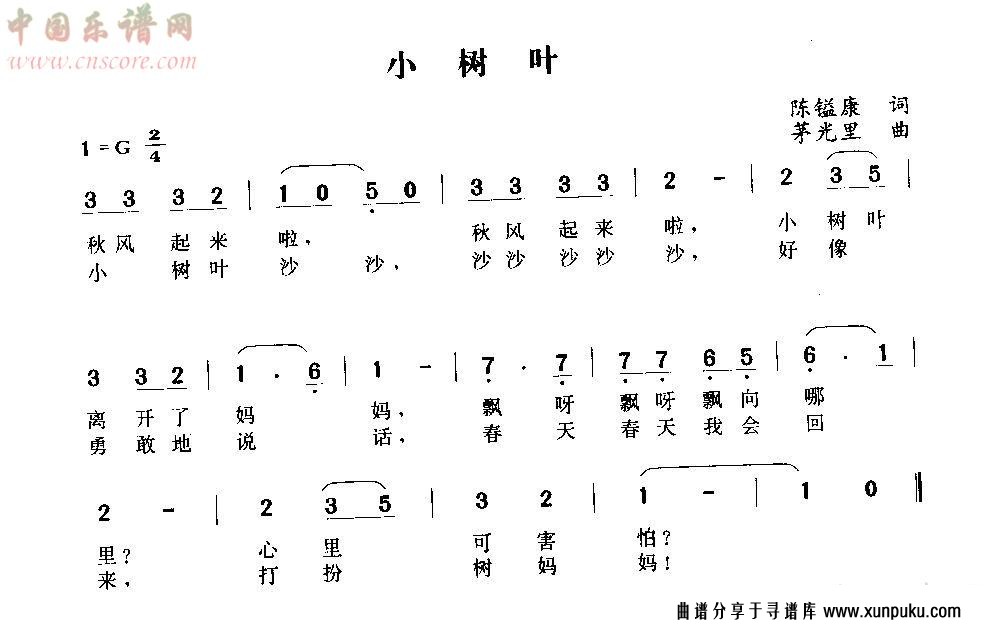 中国乐谱网
www.cnscore.com
小树叶
陈镒康 词
茅光里 曲
1=G 2/4
3 3 3 2 | 1 0 5 0 | 3 3 3 3 | 2 - | 2 3 5 |
秋风 起来 啦, 秋风 起来 啦, 小 树叶
小 树叶 沙 沙, 沙沙 沙沙 沙, 好 像
3 3 2 | 1 . 6 | 1 - | 7 . 7 | 7 7 6 5 | 6 . 1 |
离 开了 妈 妈, 飘 呀 飘呀飘向 哪
勇 敢地 说 话, 春 天 春天我会 回
2 - | 2 3 5 | 3 2 | 1 - | 1 0 ‖
里? 心 里 可 害 怕?
来, 打 扮 树 妈 妈!
曲谱分享于寻谱库 www.xunpuku.com